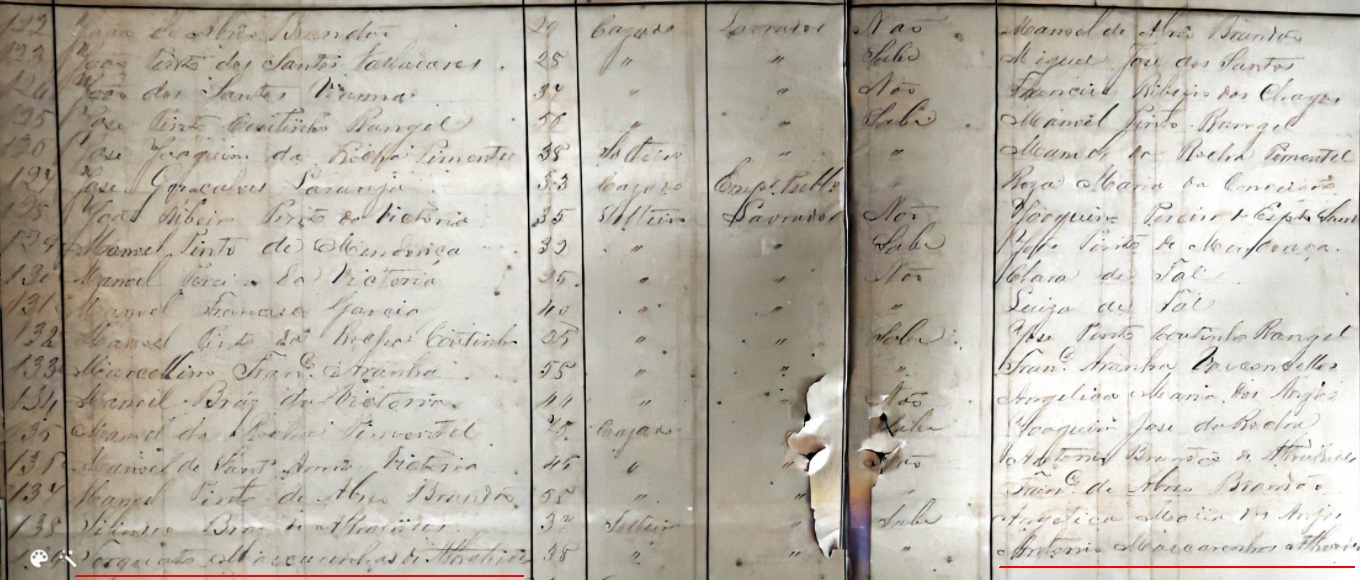 122 João de Abreu Brandão 29 Cazado Lavrador Não Manoel de Abreu Brandão
123 João Pinto dos Santos 25 " " Sabe Miguel José dos Santos
124 João dos Santos Vianna 37 " " Não Francisco Ribeiro das Chagas
125 José Pinto Coutinho Rangel 50 " " Sabe Manoel Pinto Rangel
126 José Joaquim da Rocha Pimentel 38 Solteiro " " da Rocha Pimentel
127 José Gonçalves Laranja 53 Cazado Empº Publº " Roza Maria da Conceição
128 João Ribeiro Pinto da Victoria 35 Solteiro Lavrador Não Joaquim Pereira do Espto Santo
129 Manoel Pinto de Mendonça 32 " " Sabe José Pinto de Mendonça
130 Manoel da Victoria 25 " " Não Clara de Tal
131 Manoel Francisco Garcia 40 " " " Luiza de Tal
132 Manoel Pinto da Rocha Coutinho 25 " " Sabe José Pinto Coutinho Rangel
133 Marcellino Franco Aranha 55 " " " Franco Aranha Vasconcellos
134 Manoel Braz da Victoria 44 " " Não Angelica Maria dos Anjos
135 Manoel da Rocha Pimentel Cazado Sabe Joaquim José da Rocha
136 Manoel de Sant'Anna Victoria 45 " " Não Antonio Brandão de
137 Manoel Pinto de Abreu Brandão 55 " " " Franco de Abreu Brandão
138 Braz de 37 Solteiro " Sabe Angelica Maria dos Anjos
Torquato Mascarenhas de 38 " " Antonio Mascarenhas